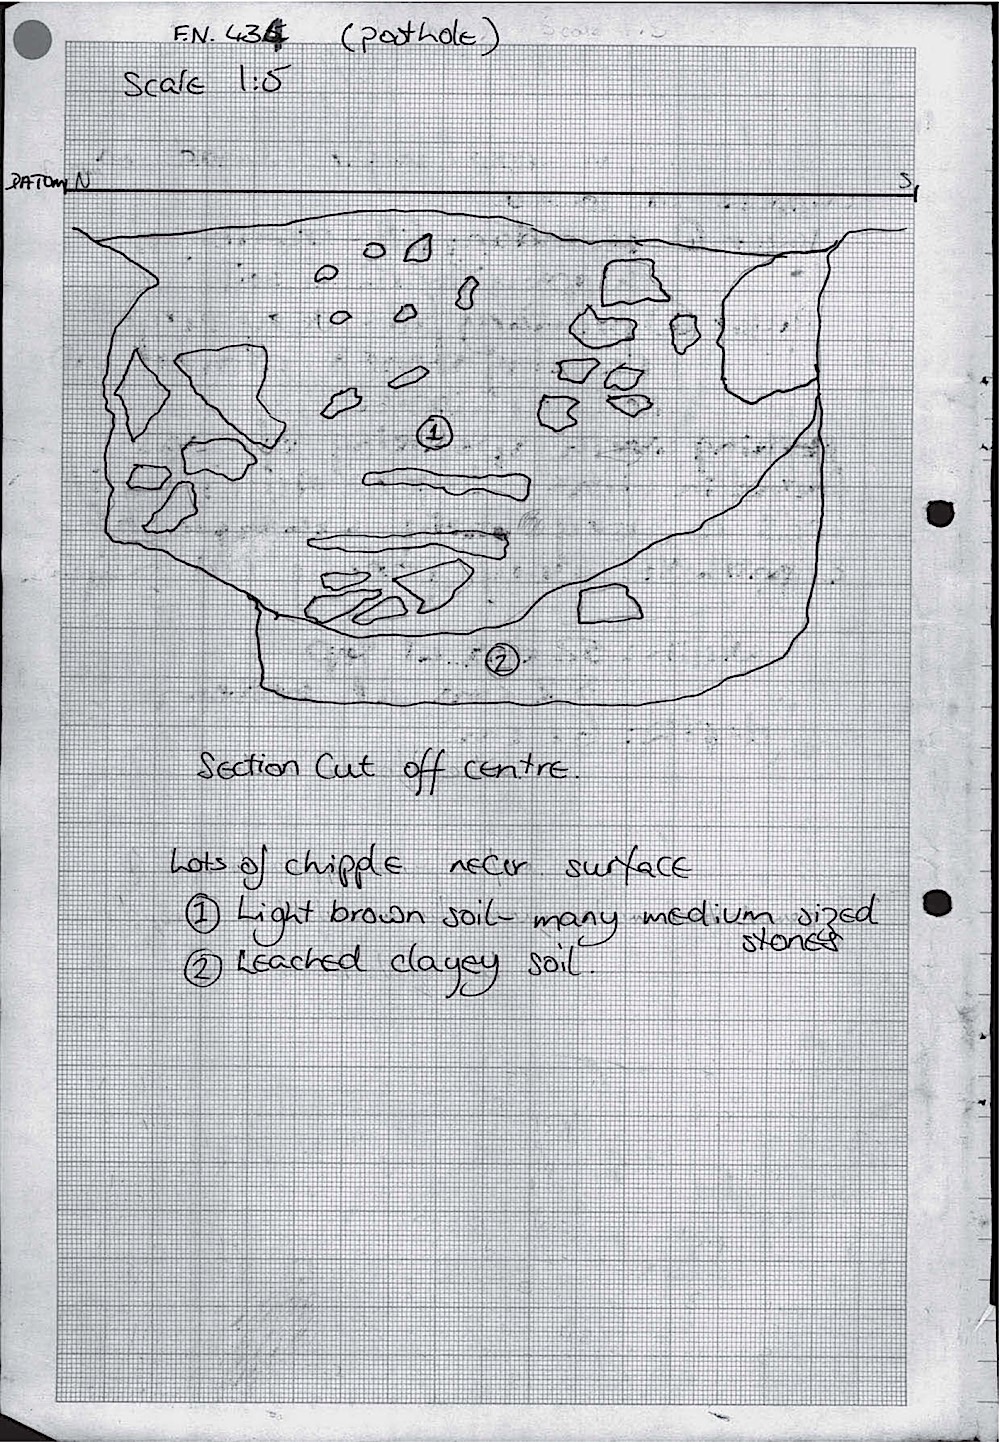 F.N. 434 (posthole)
Scale 1:5
DATUM N S
1
2
Section Cut off centre.
Lots of chipple near surface
1 Light brown soil - many medium sized
stones
2 Leached clayey soil.